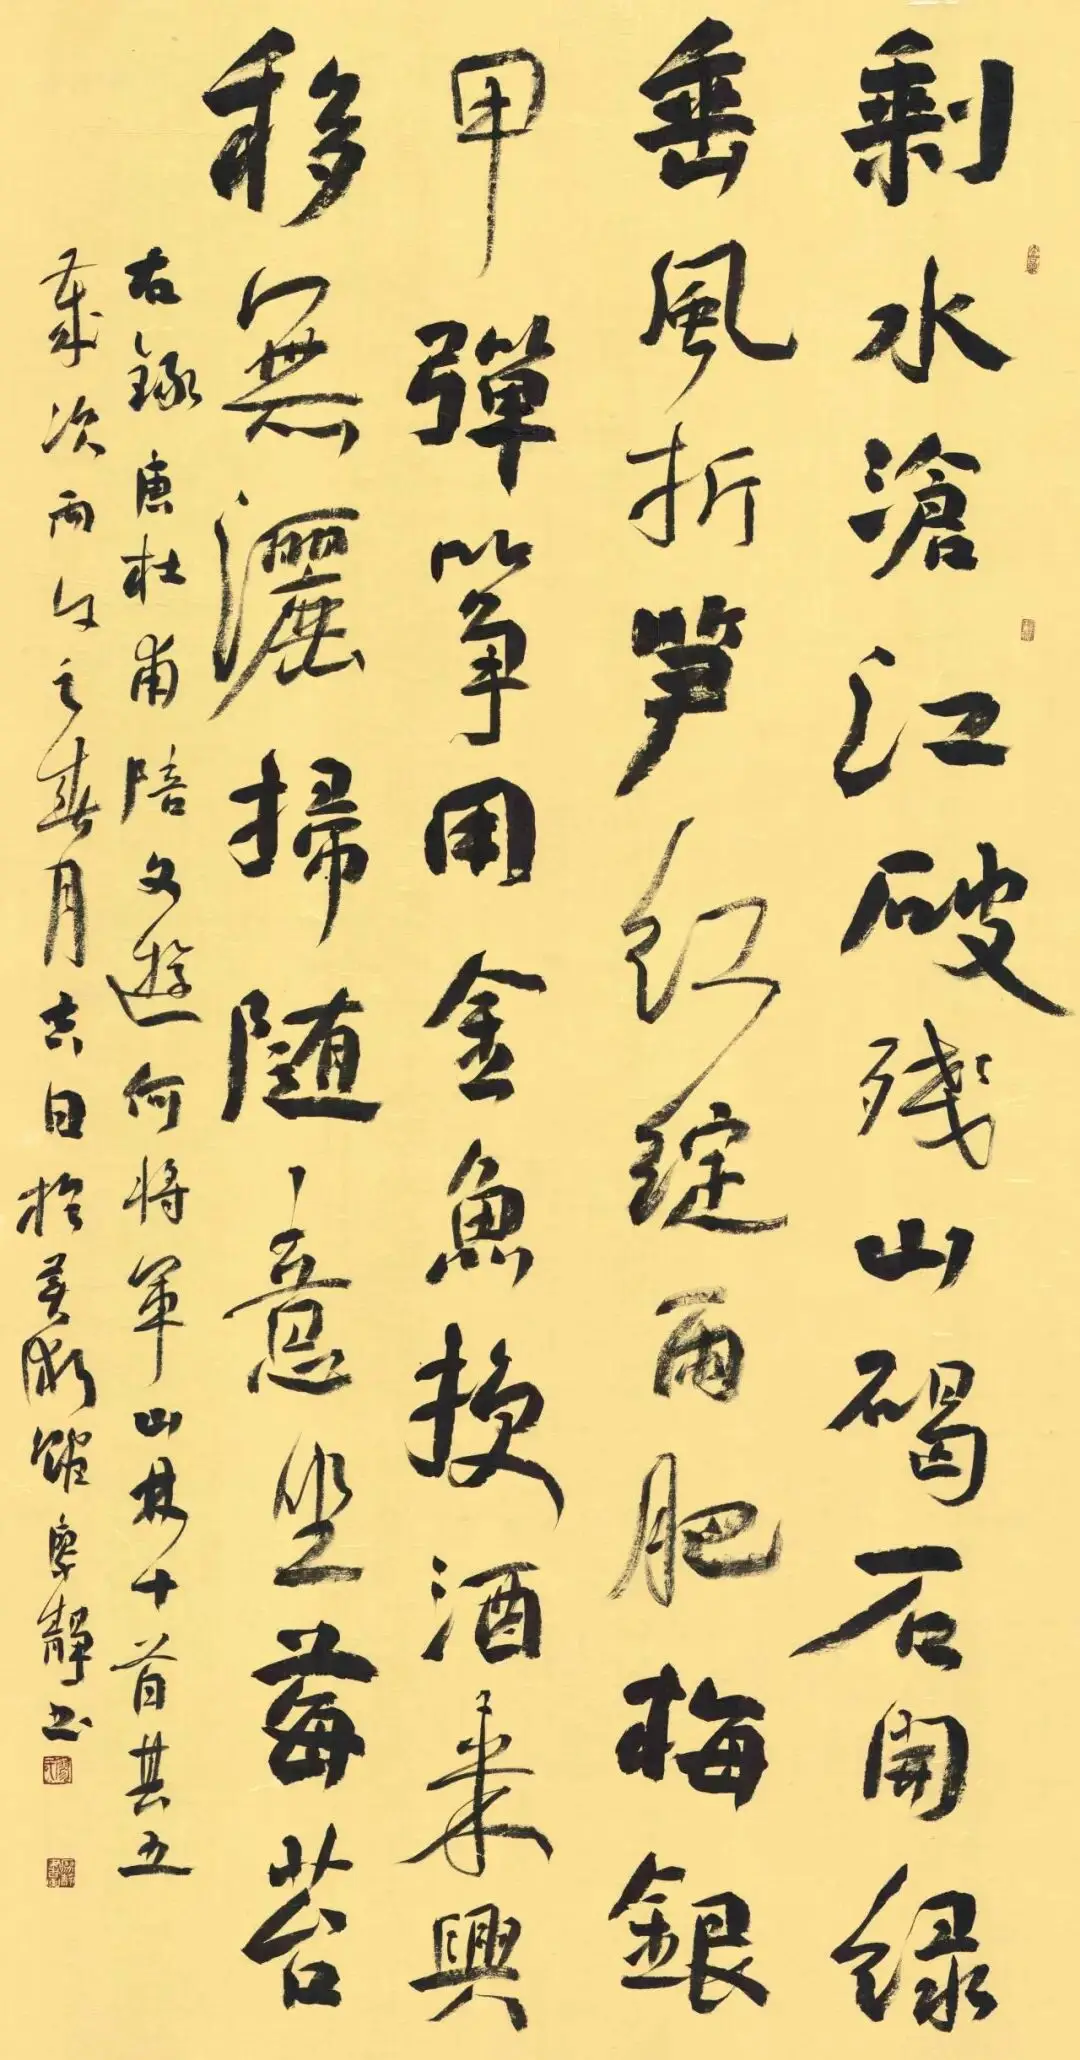 剩水滄江破殘山碣石開綠
垂風折笋紅綻雨肥梅銀
甲彈箏用金魚換酒來興
移無灑掃随意坐莓苔
右錄唐杜甫陪文遊何將軍山林十首其五
歲次丙午之春月吉日於美術館廖靜書